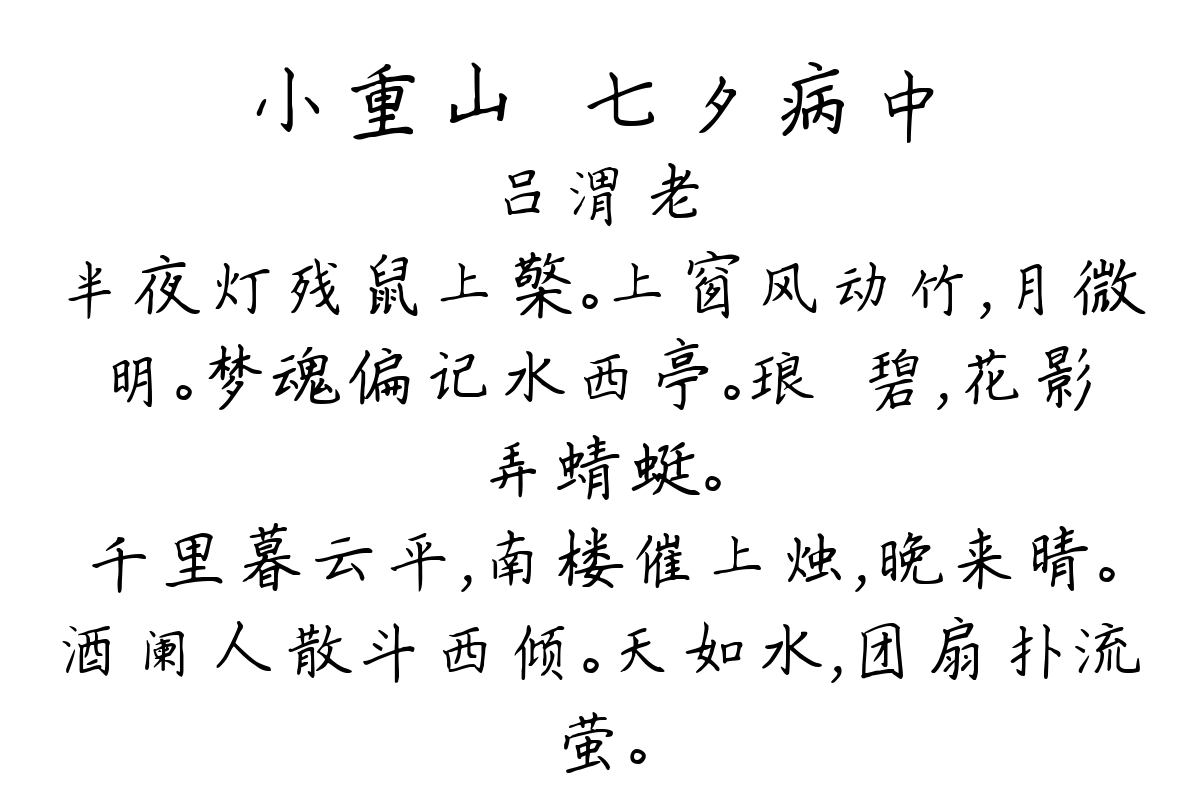 小重山 七夕病中
吕渭老
半夜灯残鼠上檠。上窗风动竹,月微
明。梦魂偏记水西亭。琅 碧,花影
弄蜻蜓。
千里暮云平,南楼催上烛,晚来晴。
酒阑人散斗西倾。天如水,团扇扑流
萤。